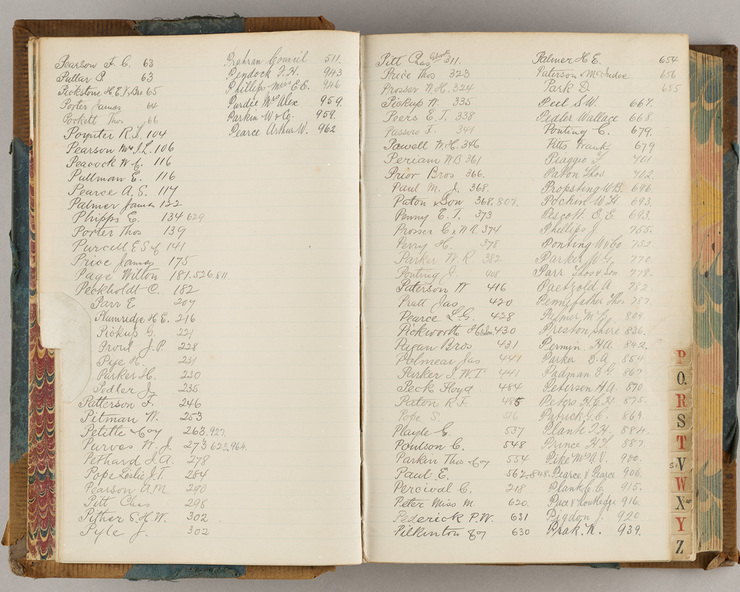 Pearson F. C. 63
Pullar P. 63
Pickstone H. E. V. 65
Porter James 64
Pockett Tho. 66
Poynter R. J. 104
Pearson Mrs J. L. 106
Peacock W. C. 116
Pullman E. 116
Pearce A. S. 117
Palmer James 122
Phipps E. 134 629
Porter Thos 139
Purcell E S 141
Price James 175
Page Wilton 181.526.811
Peckholdt C. 182
Parr E 207
Plumridge H. E. 216
Pickus G. 221
Provil J. P 228
Pye H 231
Parker H. 230
Pedler J 235
Patterson F. 246
Pitman W. 253
Petitte & Coy 263.927
Purves W. J. 273 623.964
Pethard J. A. 278
Pope Leslie J. T. 284
Pearson A M 290
Pitt Chas 298
Pither E. H. W. 302
Pyle J. 302
Prahran Council 511.
Pendock F. H. 943
Phillips Mrs E. E. 946
Purdie Mrs Alex 959.
Parkin W & Co. 959.
Pearce Arthur W. 962
Pitt Chas 311.
Price Thos 323
Prosser W. H. 324
Pickup W. 335
Peers E. T. 338
Passere J. 341
Powell W. H. 346
Periam W B 361
Prior Bros 366.
Paul M. J. 368.
Paton & Son 368, 807.
Penny E. T. 373
Prosser C & W R. 374
Perry H. 378
Parker W. R. 382
Ponting J. 408
Paterson W 416
Pratt Jas 420
Pearce L. G. 428
Pickworth H 430
Pegan Bros 431
Polmear Jas 449
Parker J. W. T. 441
Peck Floyd 484
Paton R F. 485
Pope S. 486
Playle G 537
Poulson C. 548
Parkin Thos & Coy 554
Paul E. 562,848.
Percival C. 218
Peter Miss M. 620
Pederick P. W. 631
Pilkinton & Coy 630
Palmer H. E. 654
Paterson & McIndoe 656
Park D. 655
Peel S. W. 667.
Pedler Wallace 668.
Ponting C. 679.
Pitts Frank 679
Piaggio F. 701
Paton Thos 702.
Propsting W. B. 696.
Pocken W. H 693.
Pescott E. E. 693.
Phillips J. 755.
Ponting W & Co 752.
Parker W. G. 770
Parr Thos & Son 778.
Paetzold A 782.
Pennefather Thos. 787.
Preston Shire 836.
Permin. H. A. 842.
Parker E A. 864
Padman E G. 867
Petersen H. A. 870
Peters H. E. H. 875.
Patrick G. E. 869.
Plank F. H. 884.
Prince H. Y. 887.
Pike Mr W V. 900.
Pearce & Pearce 906.
Plank C. C. 915.
Pigdon J. 920
Prak. N. 939.
P
O.
R
S
T
V
W
X
Y
Z